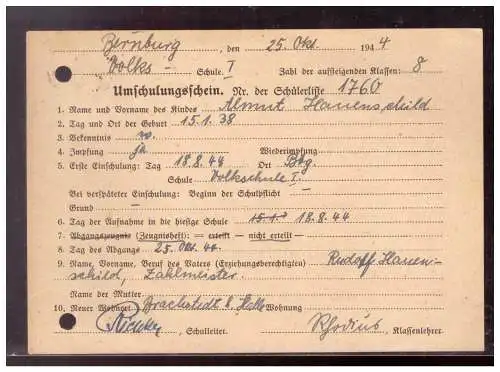 Bernburg, den 25. Okt. 1944
Volks-Schule I Zahl der aufsteigenden Klassen: 8
Umschulungsschein. Nr. der Schülerliste 1760
1. Name und Vorname des Kindes Almut Hauenschild
2. Tag und Ort der Geburt 15.1.38
3. Bekenntnis
4. Impfung ja Wiederimpfung
5. Erste Einschulung: Tag 18.8.44 Ort Bbg
Schule Volksschule I.
Bei verspäteter Einschulung: Beginn der Schulpflicht —
Grund —
6. Tag der Aufnahme in die hiesige Schule 18.8.44
7. Abgangszeugnis (Zeugnisheft) = erteilt - nicht erteilt -
8. Tag des Abgangs 25. Okt. 44.
9. Name, Vorname, Beruf des Vaters (Erziehungsberechtigten) Rudolf Hauen-
schild, Zahlmeister.
Name der Mutter
10. Neuer Wohnort Brachstedt b. Halle Wohnung
, Schulleiter. Rhodius, Klassenlehrer.